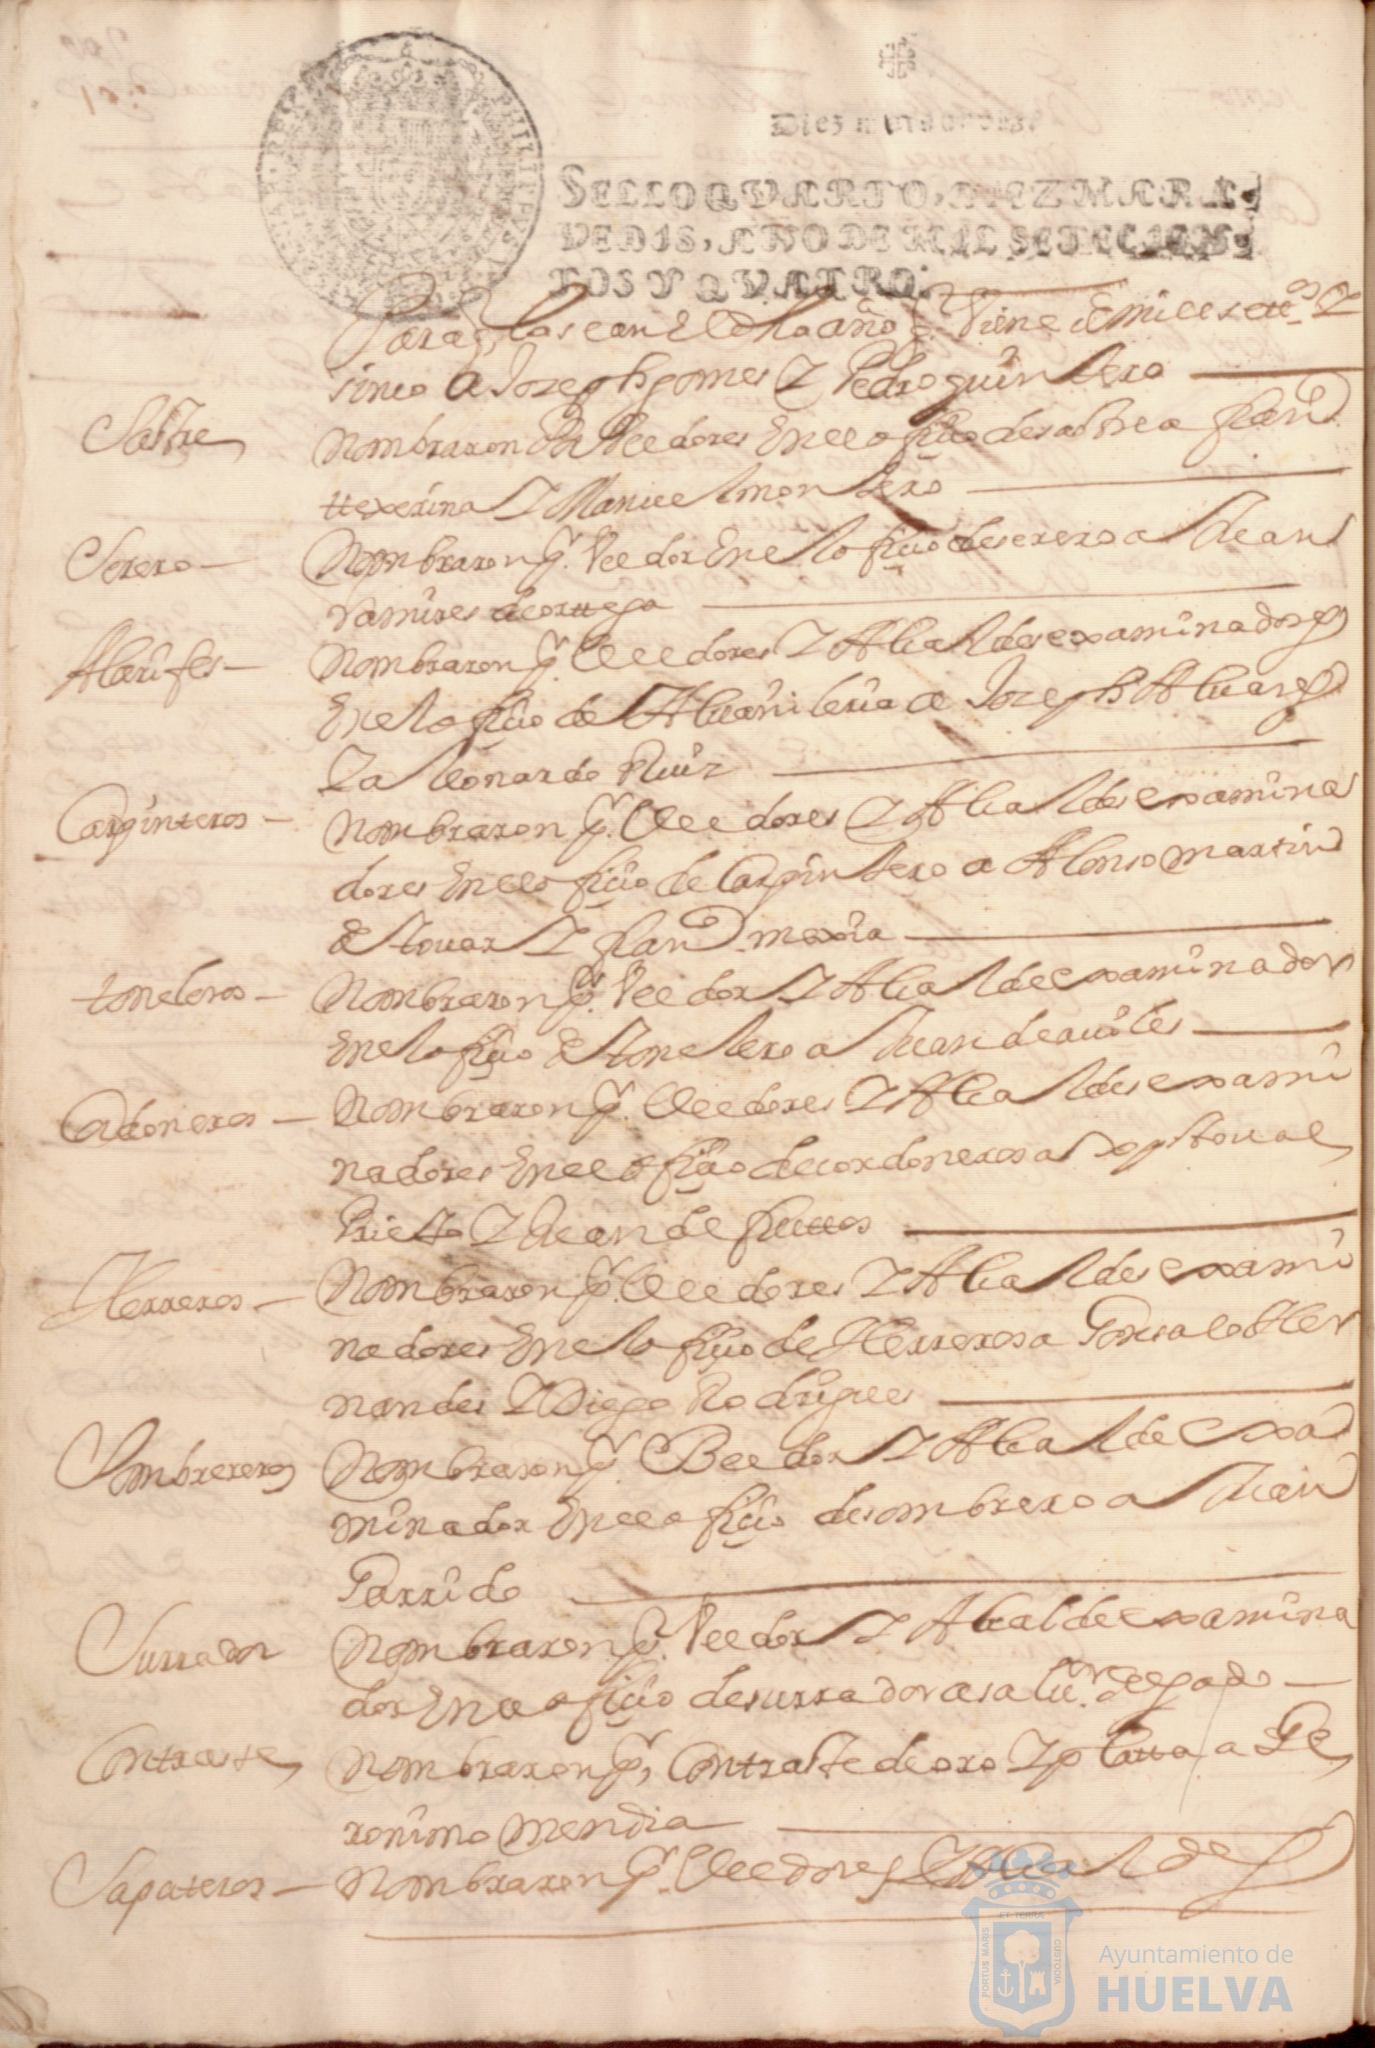 Diez maravedis.
SELLO QVARTO, DIEZ MARA-
VEDIS, AÑO DE MIL SETECIEN-
TOS Y QVATRO.
Para q los ean El dho año q Viene de mil setts Y
sinco a Joseph gomes Y Pedro quintero
Sastre
Nombraron Pr Veedores En el ofizio de sastre a fran
ttexerina Y Manuel montero
Serero
Nombraron Pr Veedor En el ofizio de serero a Juan
Ramires de orttega
Alarifes
Nombraron Pr Veedores Y Alcaldes examinadores
En el ofizio de Alvañileria a Joseph Alvares
Y a Leonardo Ruiz
Carpinteros
Nombraron Pr Veedores Y Alcaldes examina
dores En el ofizio de Carpintero a Alonso martin
de touar Y fran mexia
toneleros
Nombraron Pr Veedor Y Alcalde examinador
En el ofizio de tonelero a Juan de auiles
Cordoneros
Nombraron Pr Veedores Y Alcaldes exami
nadores En el ofizio de cordoneros a Xptoual
Prieto Y Juan de
Herreros
Nombraron Pr Veedores Y Alcaldes exami
nadores En el ofizio de Herreros a Gonsalo Her
nandes Y Diego Rodrigues
Sombrereros
Nombraron Pr Beedor Y Alcalde exa
minador En el ofizio de sombrero a Juan
Garrido
Surrador
Nombraron Pr Veedor Y Alcalde examina
dor En el ofizio de surrador a saluor delgado
Contraste
Nombraron Pr Contraste de oro Y platta a Ge
ronimo Mendia
Sapateros
Nombraron Pr Veedores Y Alcaldes
PORTUS MARIS ET TERRA CUSTODIA
Ayuntamiento de
HUELVA